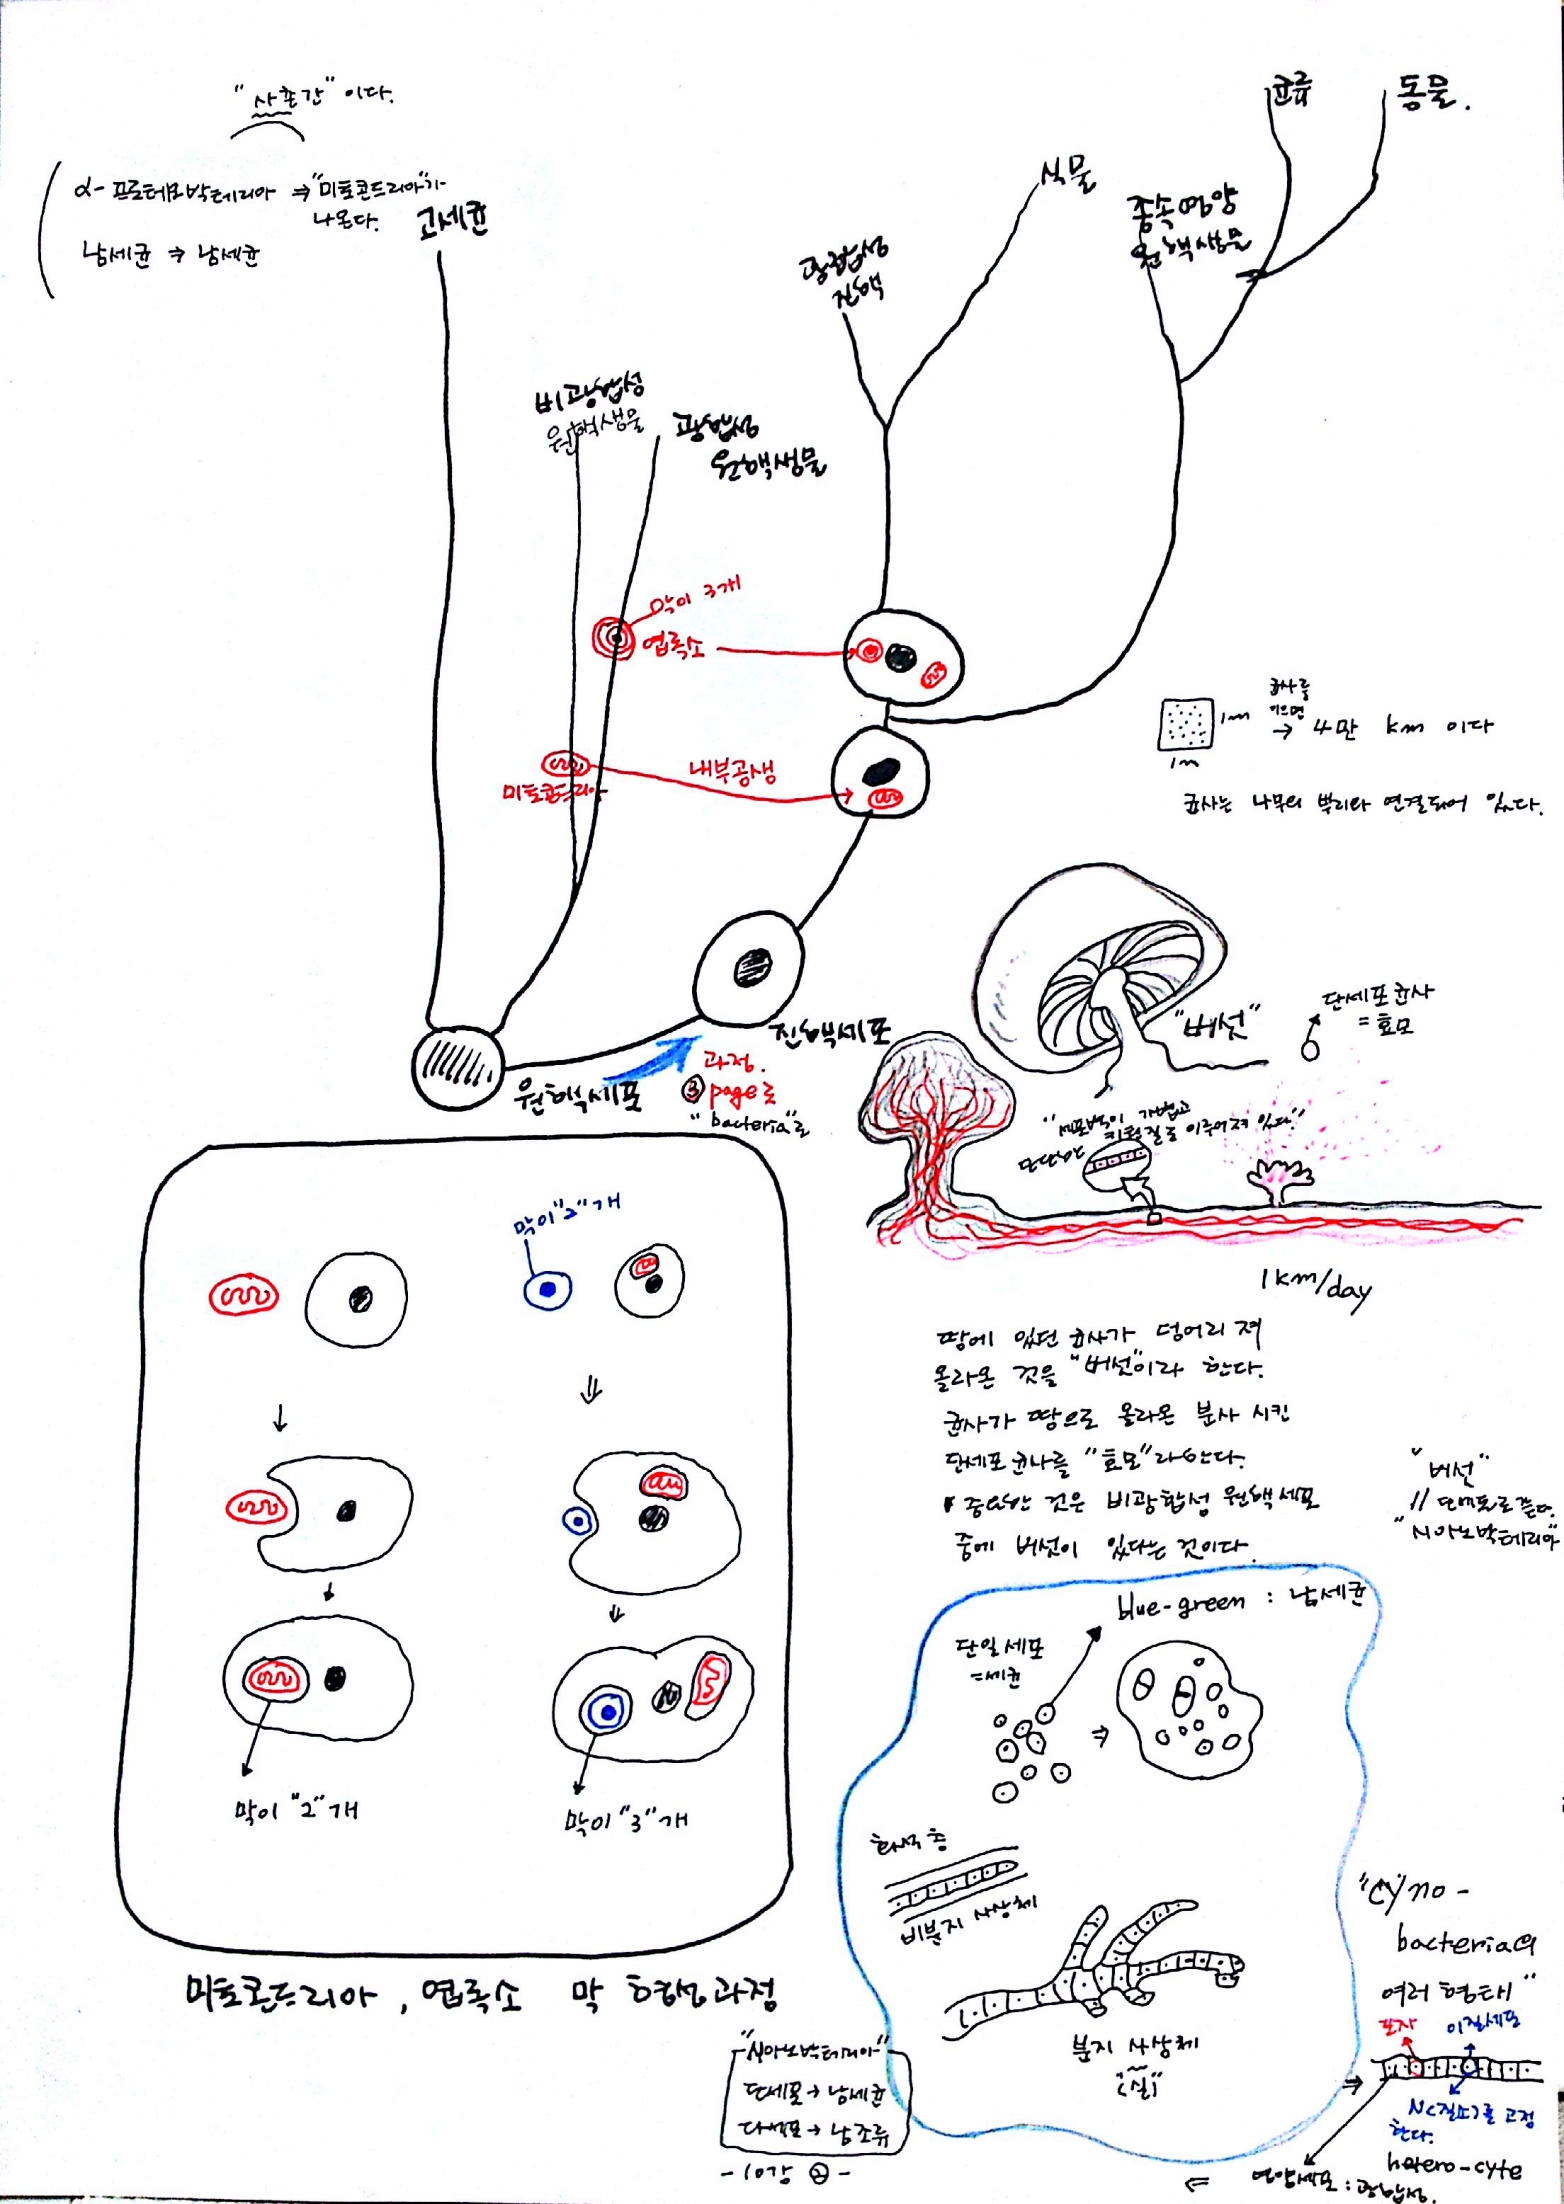 "사촌간" 이다.
α- 프로테오박테리아 ⇒ "미토콘드리아"가
나온다.
남세균 ⇒ 남세균
고세균
비광합성
원핵생물
광합성
원핵생물
광합성
진핵
식물
종속영양
원핵생물
균류
동물.
막이 3개
엽록소
미토콘드리아
내부공생
원핵세포
진핵세포
과정.
③ page로
"bacteria"로
1m
1m
균사를
이으면
→ 4만 km 이다
균사는 나무의 뿌리와 연결되어 있다.
"버섯"
단세포균사
= 효모
"세포벽이 가볍고
단단한 키틴질로 이루어져 있다."
1km/day
땅에 있던 균사가 덩어리 져
올라온 것을 "버섯"이라 한다.
균사가 땅으로 올라온 분사 시킨
단세포 균사를 "효모"라 한다.
중요한 것은 비광합성 원핵세포
중에 버섯이 있다는 것이다.
"버섯"
// 단세포로 쓴다.
"시아노박테리아"
막이 "2" 개
막이 "2" 개
막이 "3" 개
미토콘드리아, 엽록소 막 형성과정
blue-green : 남세균
단일세포
=세균
화석층
비분지 사상체
분지 사상체
"(실)"
"Cyno-
bacteria의
여러 형태"
포자
이질세포
N(질소)를 고정
한다.
hetero-cyte
영양세포 : 광합성.
"시아노박테리아"
단세포 → 남세균
다세포 → 남조류
- 10강 ② -